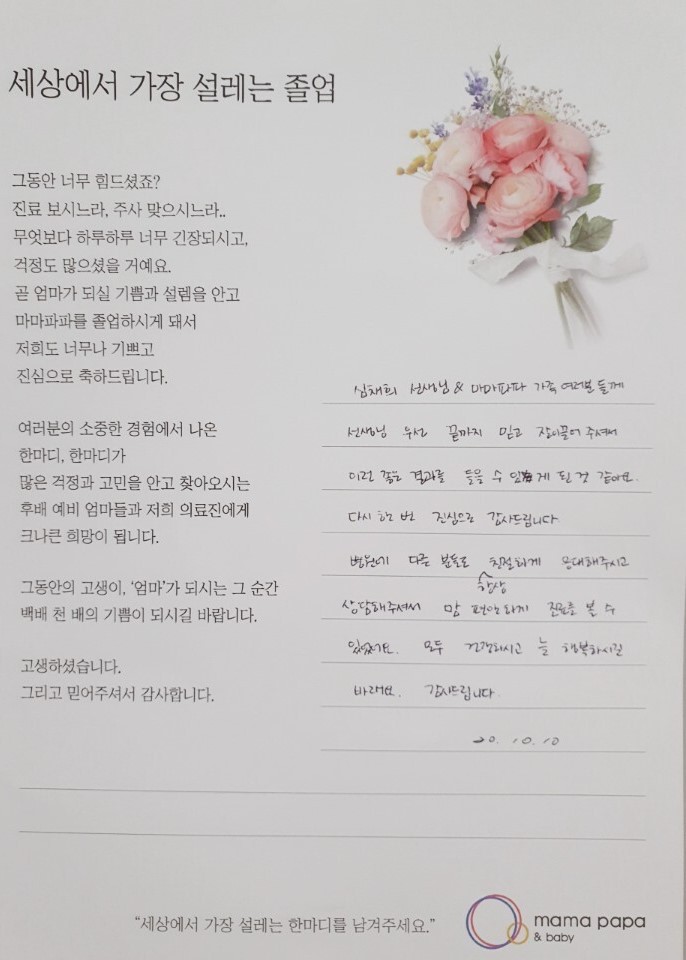 세상에서 가장 설레는 졸업
그동안 너무 힘드셨죠?
진료 보시느라, 주사 맞으시느라..
무엇보다 하루하루 너무 긴장되시고,
걱정도 많으셨을 거예요.
곧 엄마가 되실 기쁨과 설렘을 안고
마마파파를 졸업하시게 돼서
저희도 너무나 기쁘고
진심으로 축하드립니다.
여러분의 소중한 경험에서 나온
한마디, 한마디가
많은 걱정과 고민을 안고 찾아오시는
후배 예비 엄마들과 저희 의료진에게
크나큰 희망이 됩니다.
그동안의 고생이, ‘엄마’가 되시는 그 순간
백배 천 배의 기쁨이 되시길 바랍니다.
고생하셨습니다.
그리고 믿어주셔서 감사합니다.
심채희 선생님 & 마마파파 가족 여러분들께
선생님 우선 끝까지 믿고 잘 이끌어 주셔서
이런 좋은 결과를 들을 수 있게 된 것 같아요.
다시 한 번 진심으로 감사드립니다
병원에 다른 분들도 친절하게 응대해주시고
항상
상담해주셔서 맘 편안하게 진료를 볼 수
있었어요. 모두 건강하시고 늘 행복하시길
바래요. 감사드립니다.
20. 10. 10
“세상에서 가장 설레는 한마디를 남겨주세요.”
mama papa
& baby